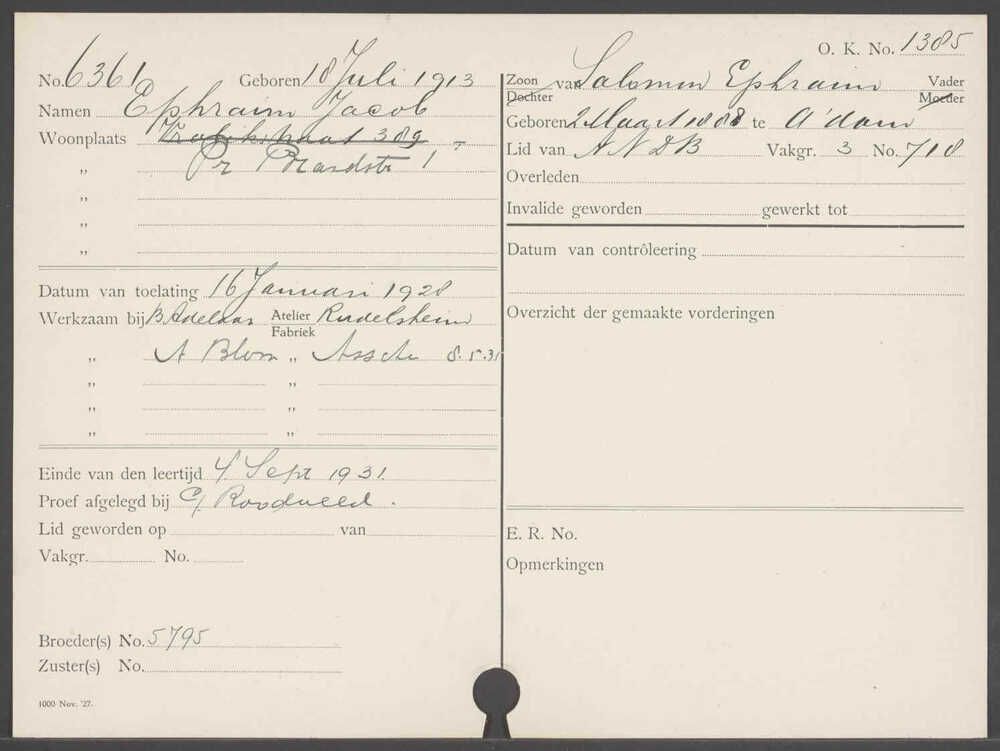 No. 6361 Geboren 18 Juli 1913
Namen Ephraim Jacob
Woonplaats 389
„ Pr 1
„
„
„
Datum van toelating 16 Januari 1928
Werkzaam bij B Adelaar Atelier Fabriek Rudelsheim
„ A Blom „ Asscher 8.5.31
„ „
„ „
„ „
Einde van den leertijd 4 Sept 1931.
Proef afgelegd bij
Lid geworden op van
Vakgr. No.
Broeder(s) No. 5795
Zuster(s) No.
1000 Nov. '27.
O. K. No. 1385
Zoon Dochter van Salomon Ephraim Vader Moeder
Geboren 2 Maart 1888 te A'dam
Lid van ANDB Vakgr. 3 No. 718
Overleden
Invalide geworden gewerkt tot
Datum van contrôleering
Overzicht der gemaakte vorderingen
E. R. No.
Opmerkingen